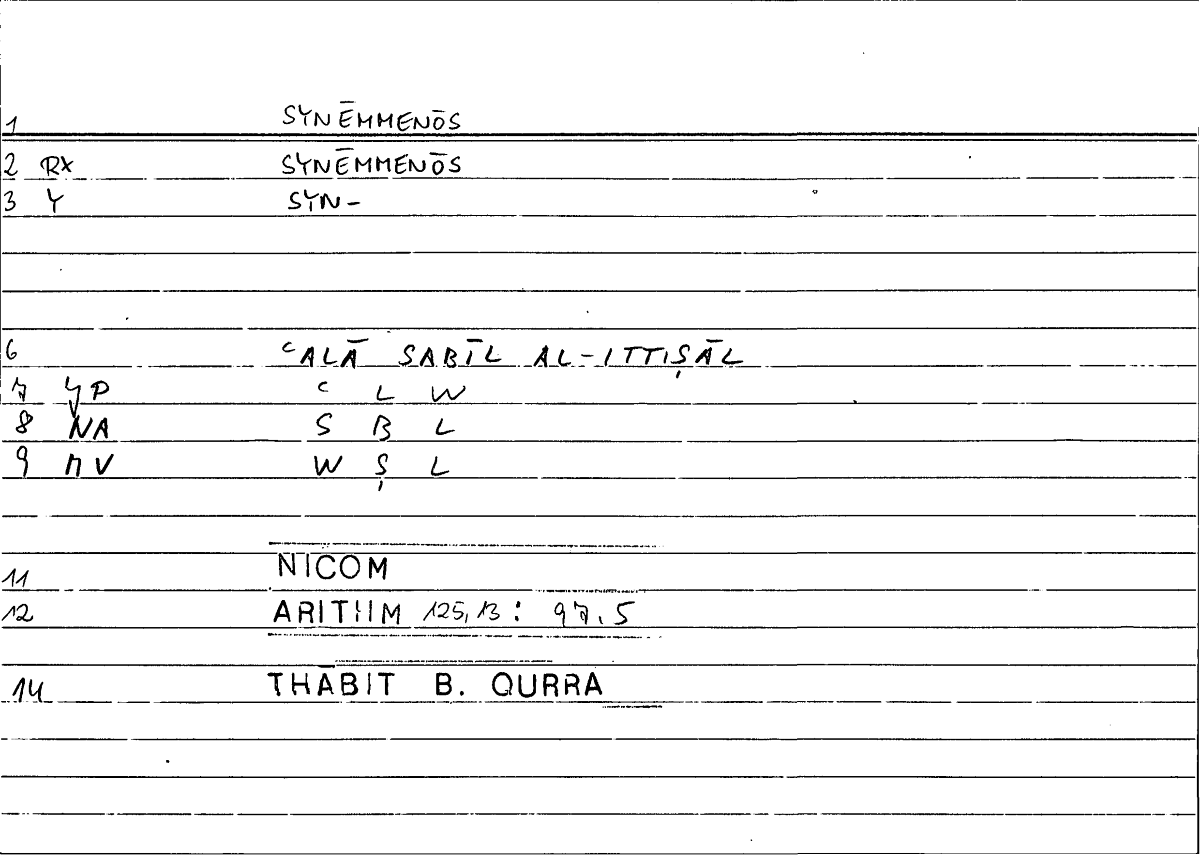 1 SYNĒMMENŌS
2 RX SYNĒMMENŌS
3 Y SYN-
6 ʿALĀ SABĪL AL-ITTIṢĀL
7 YP ʿ L W
8 NA S B L
9 NV W Ṣ L
11 NICOM
12 ARITHM 125,13: 97.5
14 THĀBIT B. QURRA